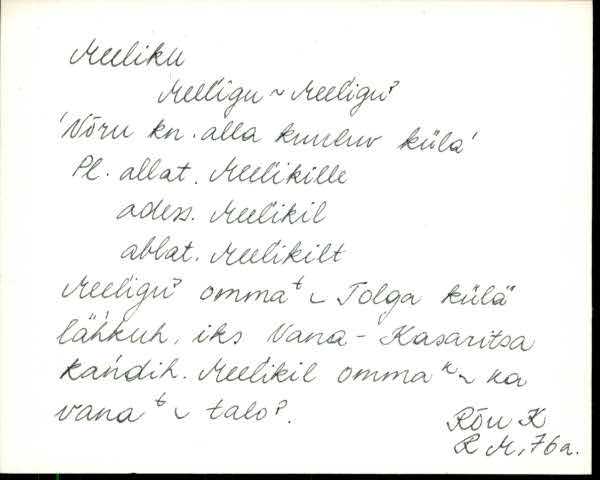 Meeliku
Meeĺigu ~ Meeĺigu̓
'Võru kn. alla kuuluv küla'
Pl. allat. Meeĺikille
adess. Meeĺikil
ablat. Meeĺikilt
Meeĺigu̓ ommaᵗ‿ Tolga külä
lähkuh, iks Vana-Kasaritsa
kańdih. Meeĺikil ommaᵏ‿ ka
vanaᵗ‿ talo̓.
Rõu K
R M, 76a.